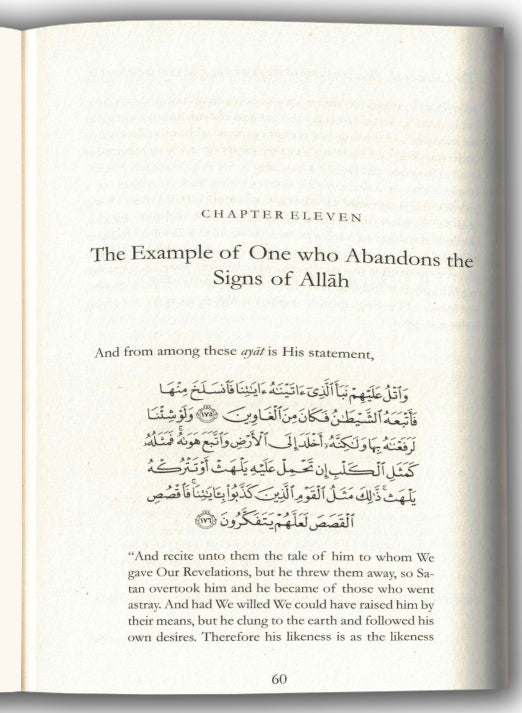 CHAPTER ELEVEN
The Example of One who Abandons the
Signs of Allāh
And from among these ayāt is His statement,
وَٱتْلُ عَلَيْهِمْ نَبَأَ ٱلَّذِىٓ ءَاتَيْنَٰهُ ءَايَٰتِنَا فَٱنسَلَخَ مِنْهَا
فَأَتْبَعَهُ ٱلشَّيْطَٰنُ فَكَانَ مِنَ ٱلْغَاوِينَ ﴿١٧٥﴾ وَلَوْ شِئْنَا
لَرَفَعْنَٰهُ بِهَا وَلَٰكِنَّهُۥٓ أَخْلَدَ إِلَى ٱلْأَرْضِ وَٱتَّبَعَ هَوَىٰهُ ۚ فَمَثَلُهُۥ
كَمَثَلِ ٱلْكَلْبِ إِن تَحْمِلْ عَلَيْهِ يَلْهَثْ أَوْ تَتْرُكْهُ
يَلْهَث ۚ ذَّٰلِكَ مَثَلُ ٱلْقَوْمِ ٱلَّذِينَ كَذَّبُوا۟ بِـَٔايَٰتِنَا ۚ فَٱقْصُصِ
ٱلْقَصَصَ لَعَلَّهُمْ يَتَفَكَّرُونَ ﴿١٧٦﴾
“And recite unto them the tale of him to whom We
gave Our Revelations, but he threw them away, so Sa-
tan overtook him and he became of those who went
astray. And had We willed We could have raised him by
their means, but he clung to the earth and followed his
own desires. Therefore his likeness is as the likeness
60